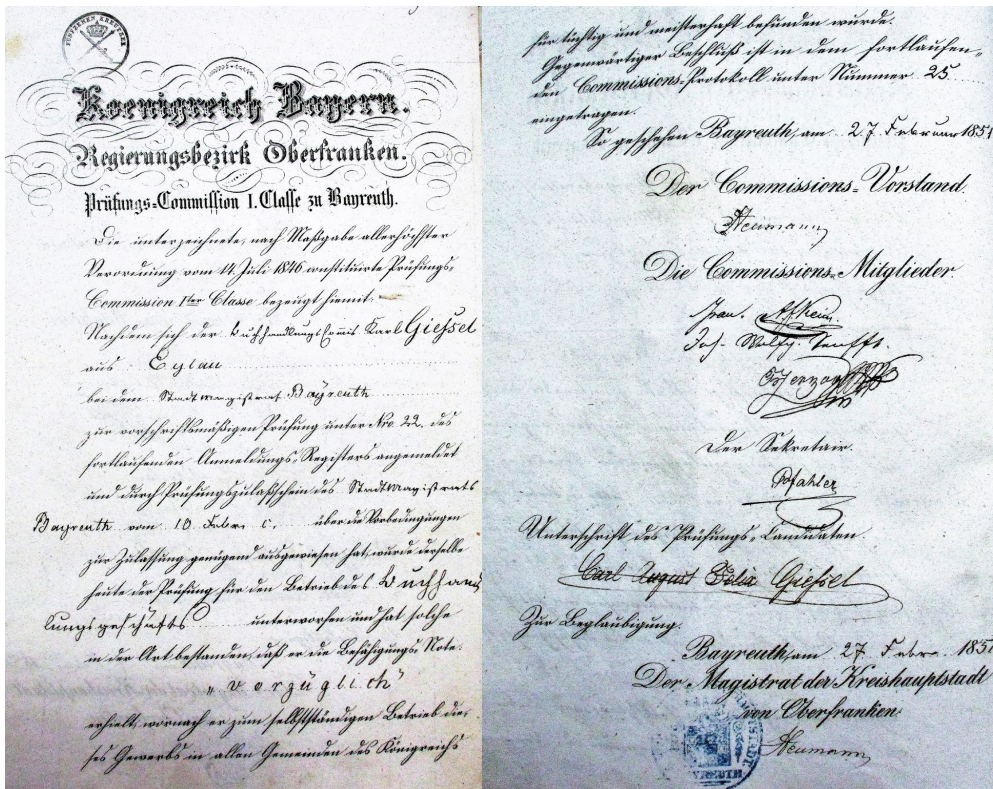 FÜNFZEHEN KREUZER
Koenigreich Bayern.
Regierungsbezirk Oberfranken.
Prüfungs-Commission I. Classe zu Bayreuth.
Die unterzeichnete, nach Maßgabe allerhöchster
Verordnung vom 14. Juli 1846 constituirte Prüfungs-
Commission Iter Classe bezeugt hiemit:
Nachdem sich der Buchhandlungs Commis Karl Gießel
aus Eylau
bei dem Stadtmagistrat Bayreuth
zur vorschriftsmäßigen Prüfung unter Nro. 22. des
fortlaufenden Anmeldungs-Registers angemeldet
und durch Prüfungszulaßschein des Stadtmagistrats
Bayreuth vom 10 Febr. c. über die Vorbedingungen
zur Zulassung genügend ausgewiesen hat, wurde derselbe
heute der Prüfung für den Betrieb des Buchhand
lungsgeschäfts unterworfen und hat solche
in der Art bestanden, daß er die Befähigungs-Note:
"vorzüglich"
erhielt, wornach er zum selbstständigen Betrieb die-
ses Gewerbs in allen Gemeinden des Königreichs
für tüchtig und meisterhaft befunden wurde.
Gegenwärtiger Beschluß ist in dem fortlaufen-
den Commissions-Protokoll unter Nummer 25
eingetragen.
So geschehen Bayreuth, am 27. Februar 1851
Der Commissions-Vorstand
Neumann
Die Commissions-Mitglieder
Joh. Wolfg. Senfft.
Herzog
Der Sekretair.
Pfahler
Unterschrift des Prüfungs-Candidaten
Carl August Felix Gießel
Zur Beglaubigung.
Bayreuth, am 27. Febr. 1851
Der Magistrat der Kreishauptstadt
von Oberfranken.
Neumann